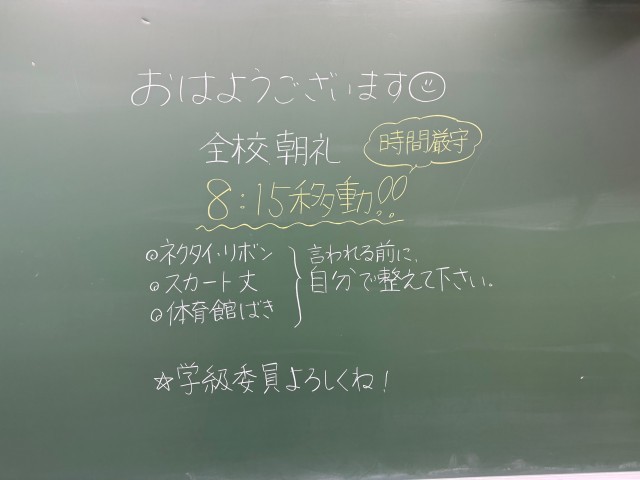 おはようございます☺
全校朝礼
時間厳守
8:15移動!!
◎ネクタイ・リボン
◎スカート丈
◎体育館ばき
言われる前に、
自分で整えて下さい。
☆学級委員よろしくね!